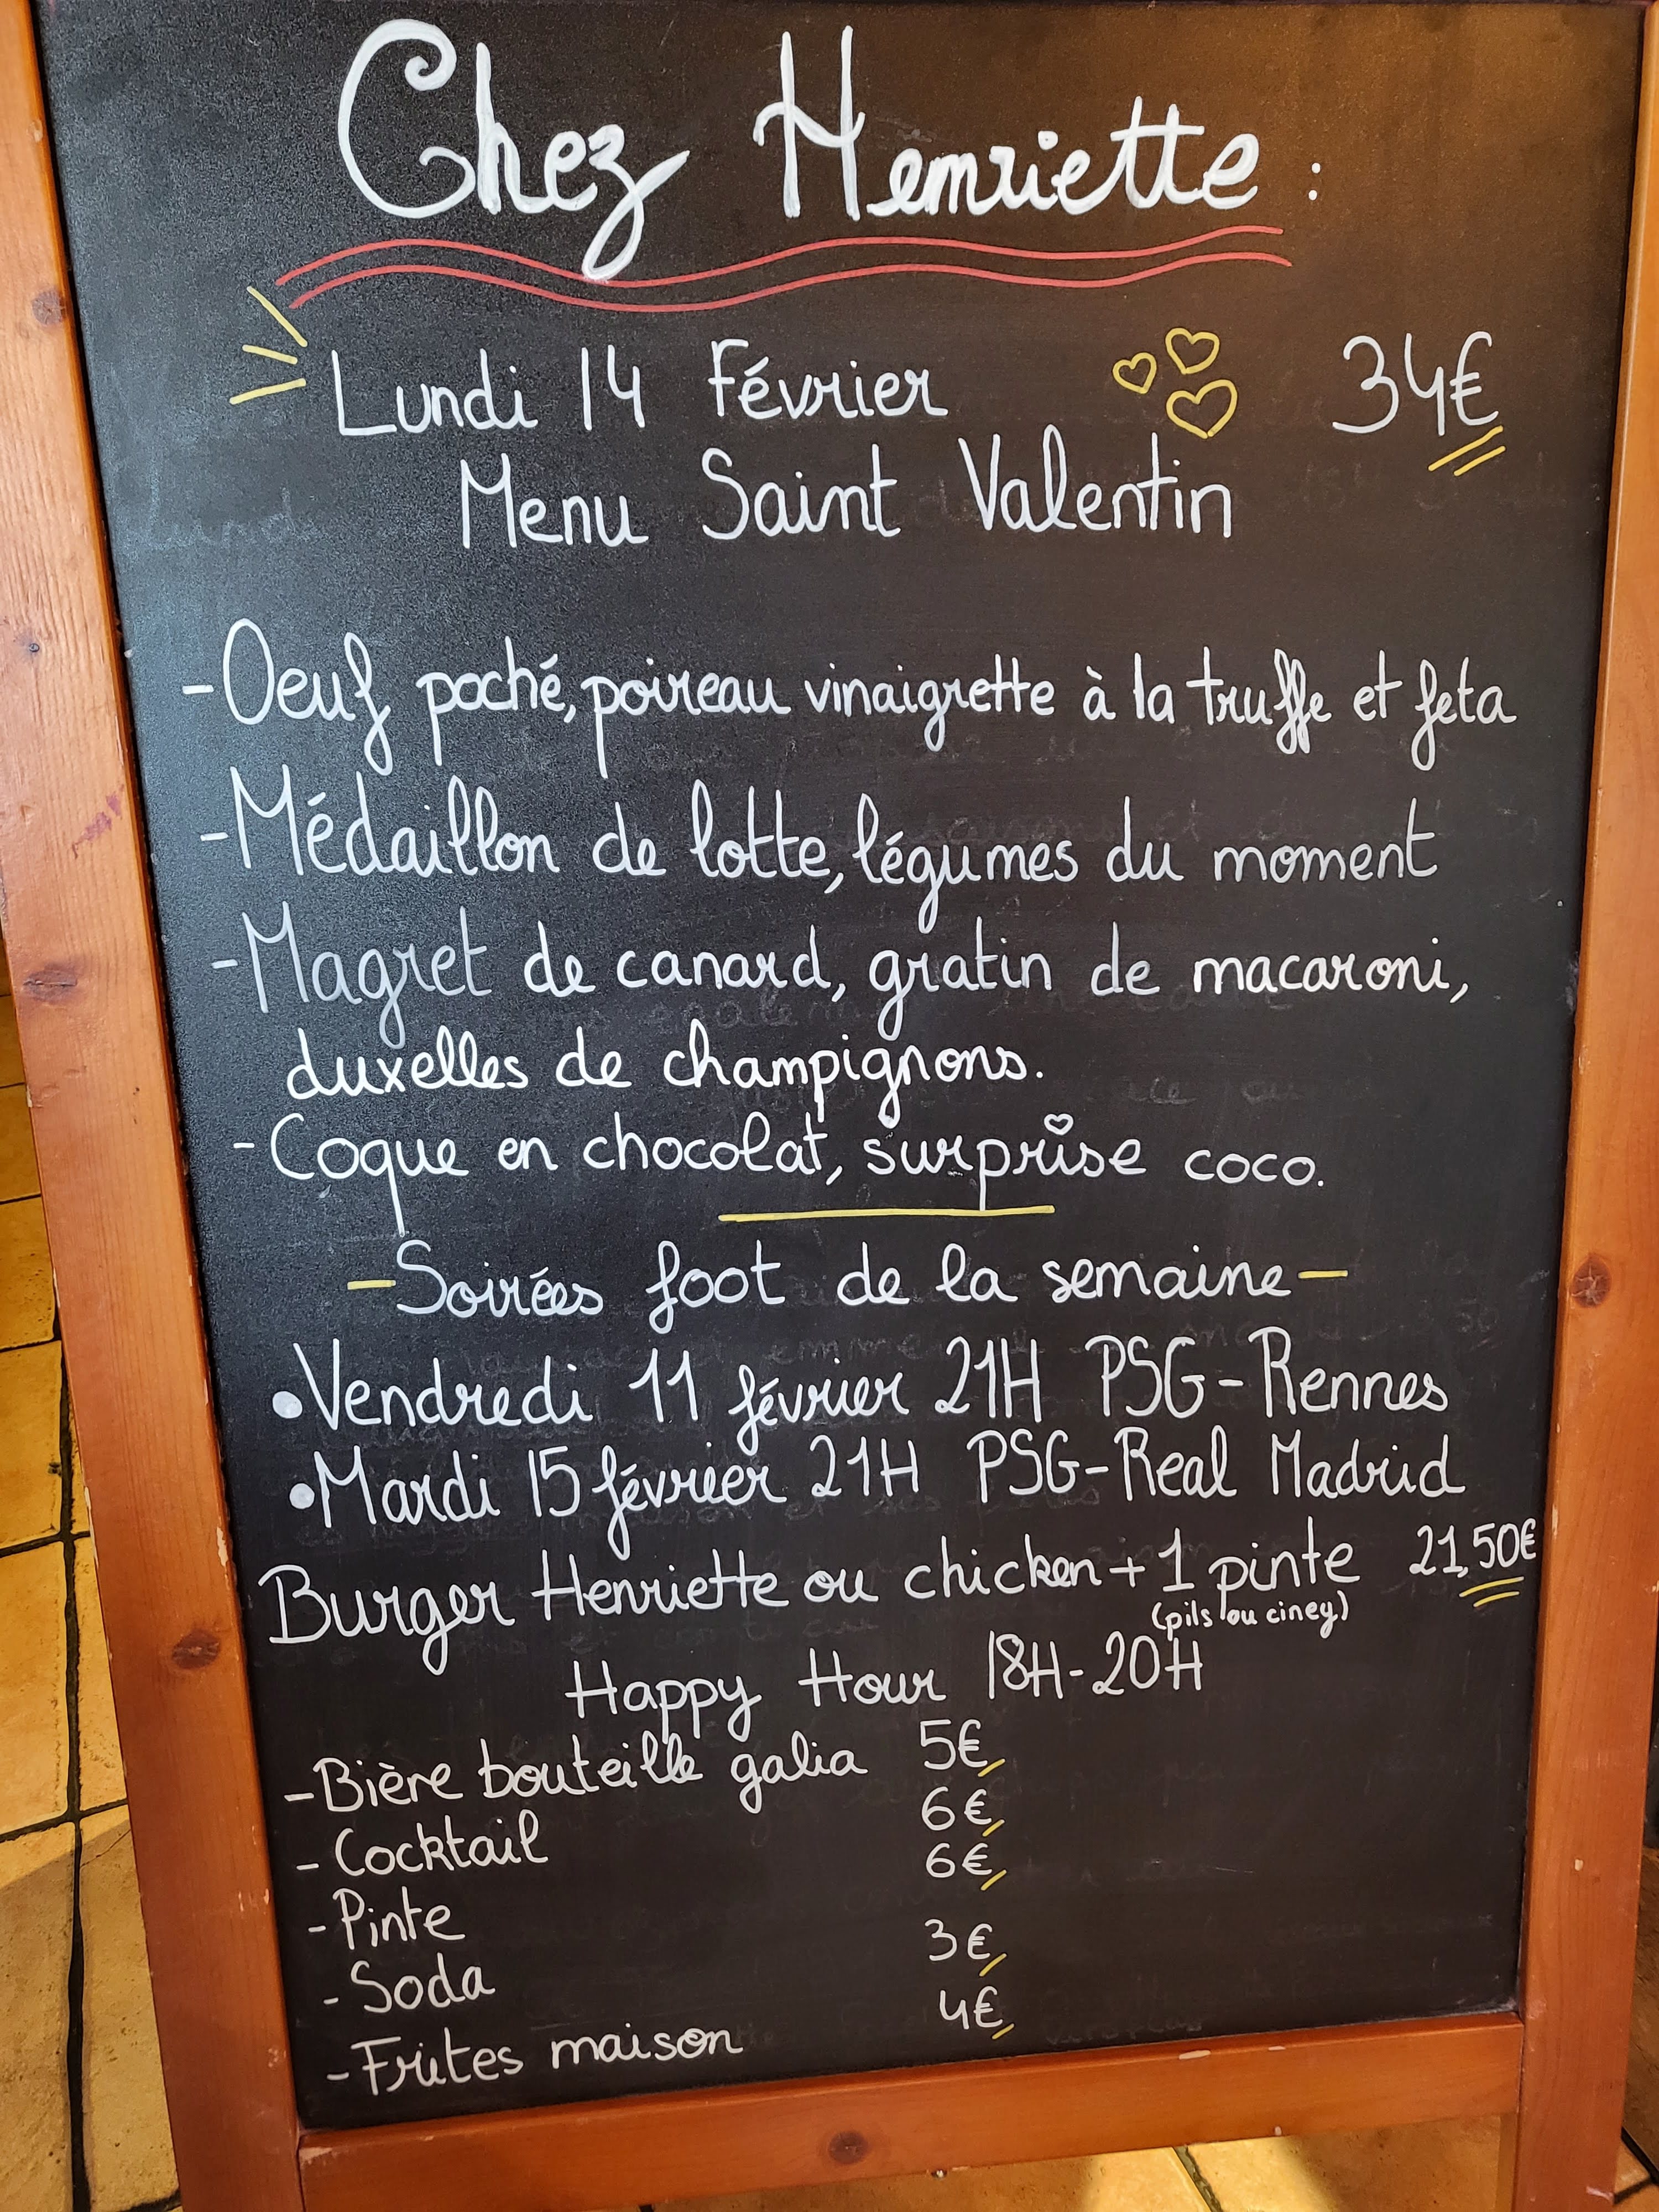 Chez Henriette :
Lundi 14 Février 34€
Menu Saint Valentin
-Oeuf poché, poireau vinaigrette à la truffe et feta
-Médaillon de lotte, légumes du moment
-Magret de canard, gratin de macaroni,
duxelles de champignons.
-Coque en chocolat, surprise coco.
-Soirées foot de la semaine-
•Vendredi 11 février 21H PSG-Rennes
•Mardi 15 février 21H PSG-Real Madrid
Burger Henriette ou chicken+1 pinte 21,50€
(pils ou ciney)
Happy Hour 18H-20H
-Bière bouteille galia 5€
-Cocktail 6€
-Pinte 6€
-Soda 3€
-Frites maison 4€